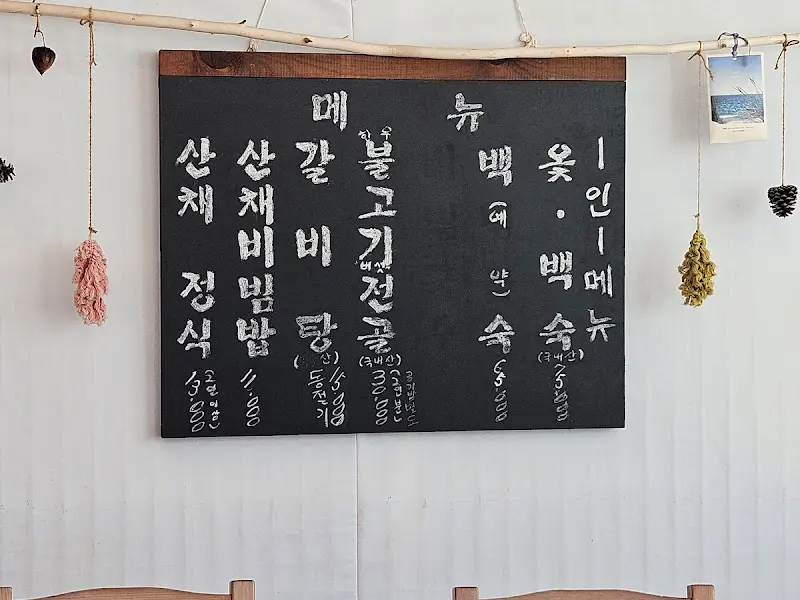 메뉴
산채 정식
13,000
(2인 이상)
산채비빔밥
11,000
갈비탕
산)
15,000
동절기
한우
불고기
버섯
전골
(국내산)
30,000
백(예약)숙
65,000
옻·백숙
(국내산)
75,000
ㅣ인ㅣ메뉴